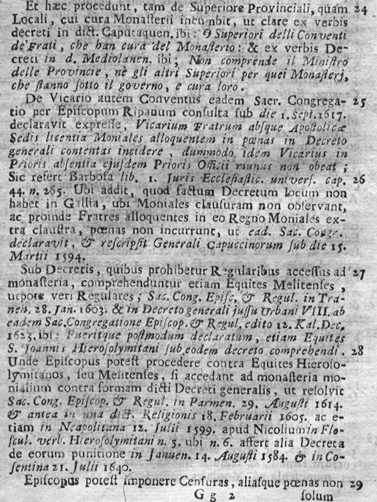 Et hæc procedunt, tam de Superiore Provinciali, quam 24
Locali, cui cura Monasterii incumbit, ut clare ex verbis
decreti in dict. Caputaquen. ibi: O Superiori delli Conventi
de' frati, che han cura del Monasterto: & ex verbis De-
creti in d. Mediolanen. ibi; Non comprende il Ministro
delle Provincie, nè gli altri Superiori per quei Monasterj,
che stanno sotto il governo, e cura loro.
De Vicario autem Conventus eadem Sacr. Congrega- 25
tio per Episcopum Ripanum consulta sub die 1. Sept. 1617.
declaravit expresse, Vicarium Fratrum absque Apostolicæ
Sedis licentia Moniales alloquentem in pœnas in Decreto
generali contentas incidere, dummodo idem Vicarius in
Prioris absentia ejusdem Prioris Officii munus non obeat;
Sic refert Barbosa lib. 1. Juris Ecclesiastic. univers. cap. 26
44. n. 265. Ubi addit, quod factum Decretum locum non
habet in Gallia, ubi Moniales clausuram non observant,
ac proinde Fratres alloquentes in eo Regno Moniales ex-
tra claustra, pœnas non incurrunt, ut ead. Sac. Congr.
declaravit, & rescripsit Generali Capuccinorum sub die 15.
Martii 1594.
Sub Decretis, quibus prohibetur Regularibus accessus ad 27
monasteria, comprehenduntur etiam Equites Melitenses,
utpote veri Regulares; Sac. Cong. Episc. & Regul. in Tra-
nen. 28. Jan. 1603. & in Decreto generali jussu Urbani VIII. ab
eadem Sac. Congregatione Episcop. & Regul. edito 12. Kal. Dec.
1623. ibi: Fueritque postmodum declaratum, etiam Equites
S. Joannis Hierosolymitani sub eodem decreto comprehendi. 28
Unde Episcopus potest procedere contra Equites Hieroso-
lymitanos, seu Melitenses, si accedant ad monasteria mo-
nialium contra formam dicti Decreti generalis, ut resolvit
Sac. Cong. Episcop. & Regul. in Parmen. 29. Augusti 1614.
& antea in una dict. Religionis 18. Februarii 1605. ac e-
tiam in Neapolitana 12. Julii 1599. apud Nicolium in Flo-
scul. verb. Hierosolymitani n. 5. ubi n. 6. affert alia Decreta
de eorum punitione in Januen. 14. Augusti 1584. & in Co-
sentina 21. Julii 1640.
Episcopus potest imponere Censuras, aliasque pœnas non 29
G g 2 solum